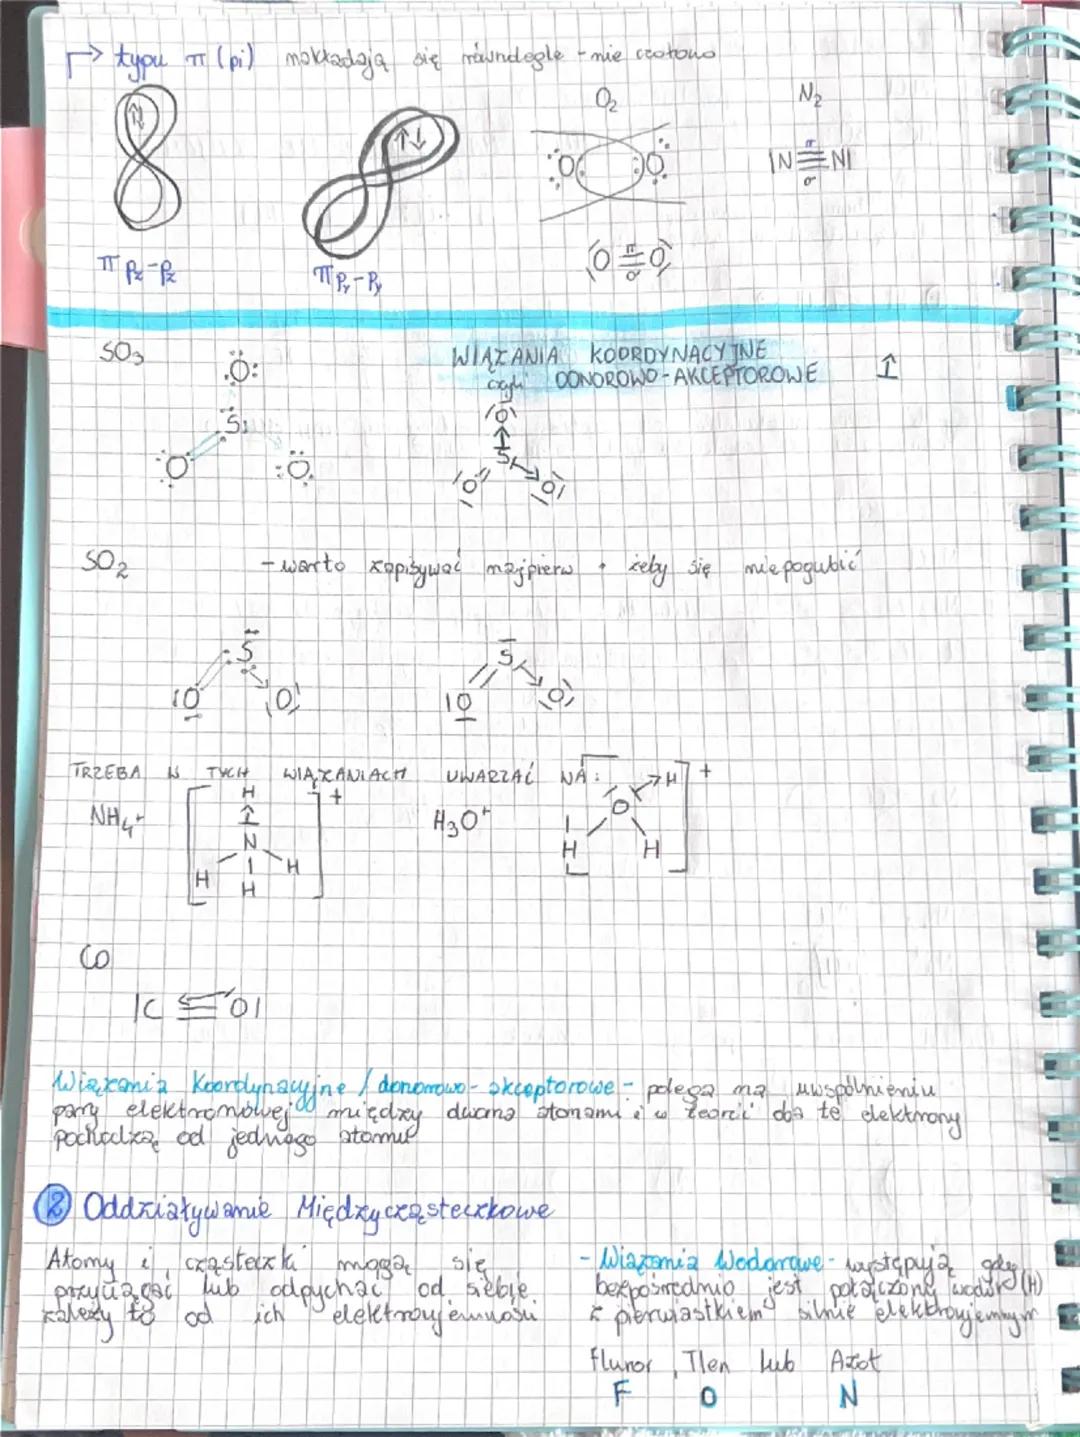 → typu π (pi) nakładają się równolegle - nie czołowo
O₂ N₂
O O
|N≡N|
π
σ
O = O
π
σ
π pz-pz π py-py
SO₃ WIĄZANIA KOORDYNACYJNE
czyli DONOROWO-AKCEPTOROWE ↑
O O
S S
O O O O
SO₂ - warto zapisywać najpierw • żeby się nie pogubić
S S
|O O |O O
TRZEBA W TYCH WIĄZANIACH UWARZAĆ NA:
NH₄⁺ [ H ↑ N H H H ]⁺ H₃O⁺ [ O → H H H ]⁺
CO
|C ≡ O|
Wiązania Koordynacyjne / donorowo-akceptorowe - polega na uwspólnieniu
pary elektronowej między dwoma atomami i w teorii oba te elektrony
pochodzą od jednego atomu
② Oddziaływanie Międzycząsteczkowe
Atomy i cząsteczki mogą się
przyciągać lub odpychać od siebie.
zależy to od ich elektroujemności
- Wiązania Wodorowe - występują gdy
bezpośrednio jest połączony wodór (H)
z pierwiastkiem silnie elektroujemnym
fluor, Tlen lub Azot
F O N